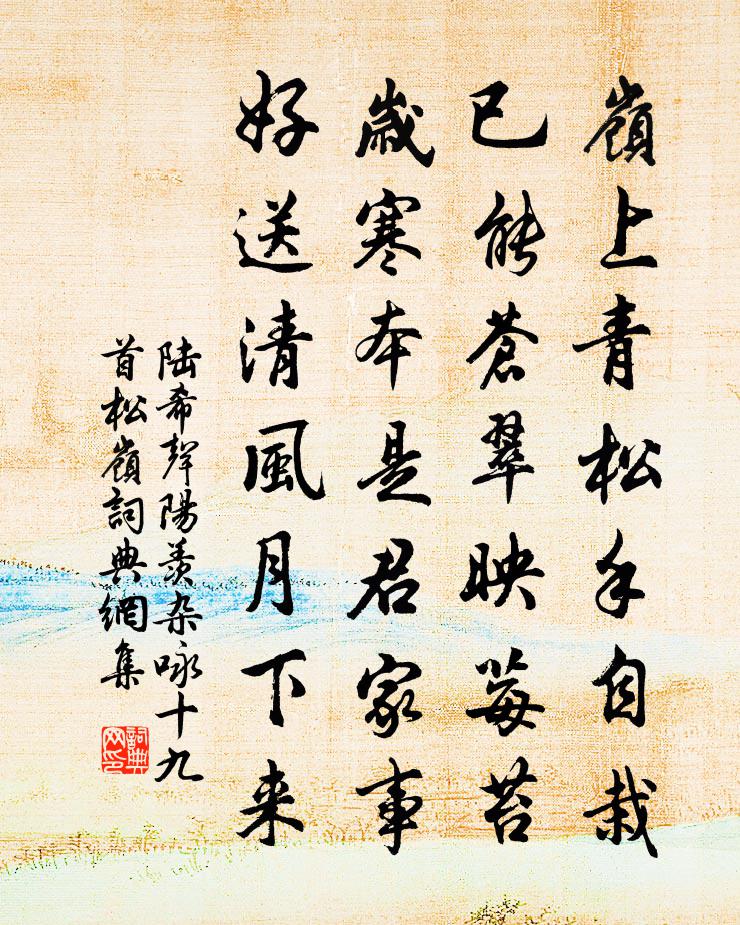 嶺上青松手自栽
已能蒼翠映莓苔
歲寒本是君家事
好送清風月下来
陆希聲陽羨杂咏十九
首松嶺詞典網集
詞典
网印